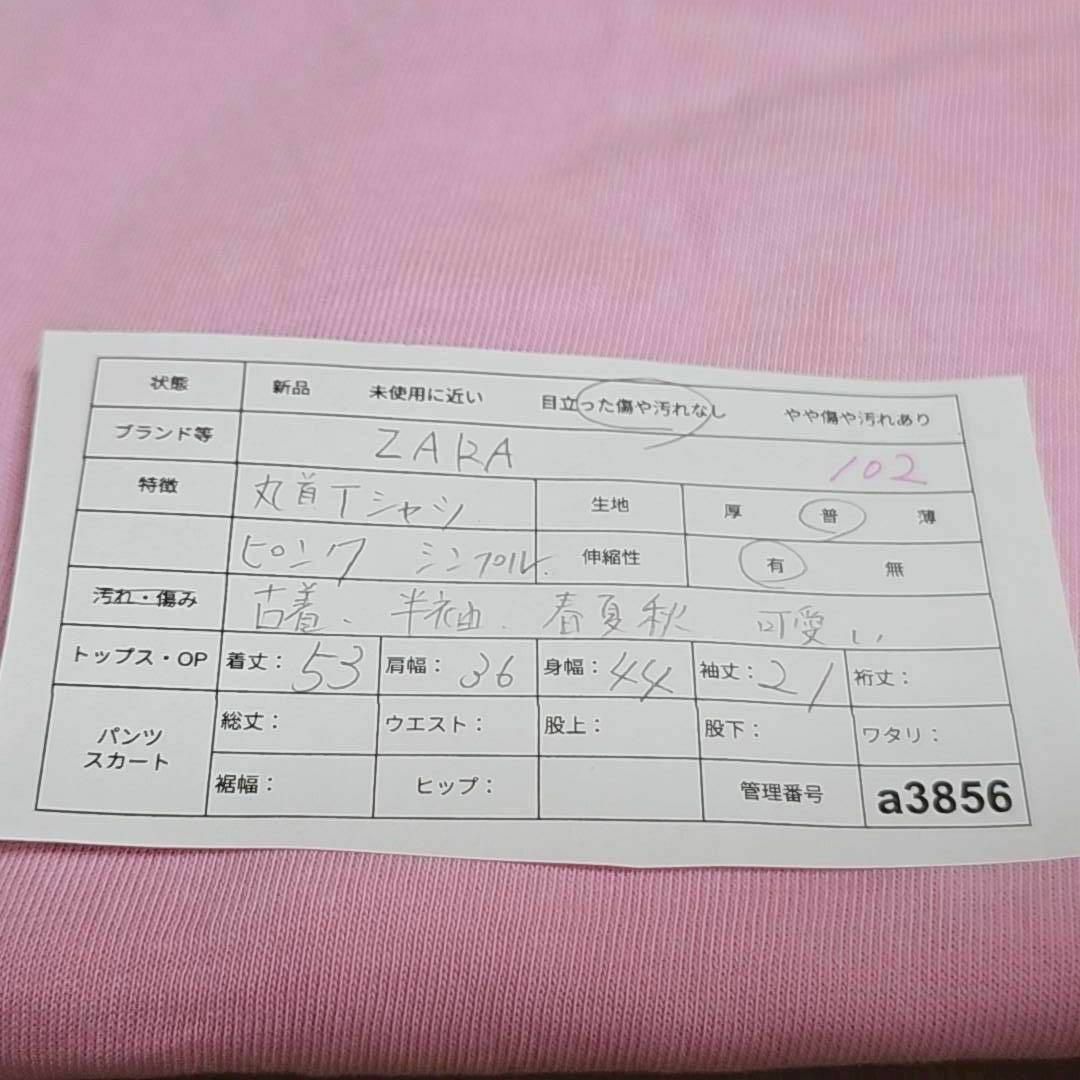 状態 新品 未使用に近い 目立った傷や汚れなし やや傷や汚れあり
ブランド等 ZARA 102
特徴 丸首Tシャツ 生地 厚 普 薄
ピンク シンプル. 伸縮性 有 無
汚れ・傷み 古着、半袖、春夏秋 可愛い
トップス・OP 着丈: 53 肩幅: 36 身幅: 44 袖丈: 21 裄丈:
パンツ スカート 総丈: ウエスト: 股上: 股下: ワタリ:
裾幅: ヒップ: 管理番号 a3856